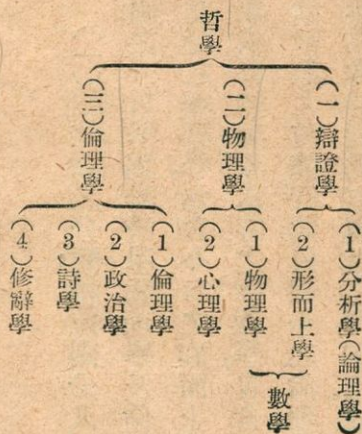 哲學
(一)辯證學
(1)分析學(論理學)
(2)形而上學
(二)物理學
(1)物理學
(2)心理學
數學
(三)倫理學
(1)倫理學
(2)政治學
(3)詩學
(4)修辭學